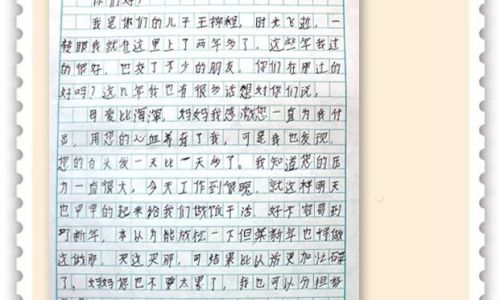 你们好?
我是你们的儿子王梓程,时光飞逝,一
转眼我就在这里上了两年多了,这些年我过
的很好,也交了不少的朋友,你们在那过的
好吗?这几年我也有很多话想对你们说。
母爱比海深,妈妈我感激您一直为我付
出,用您的心血养育了我,可是我也发现,
您的白头发一天比一天多了。我知道您的压
力一直很大,今天工作到很晚,就这样明天
也早早的起来给我们做饭干活,好不容易到
了新年,本以为能放松一下但菜新年也得做
这做那,买这买那,可结果比以前更加忙碌
了,妈妈您也不要太累了,我也可以分担家